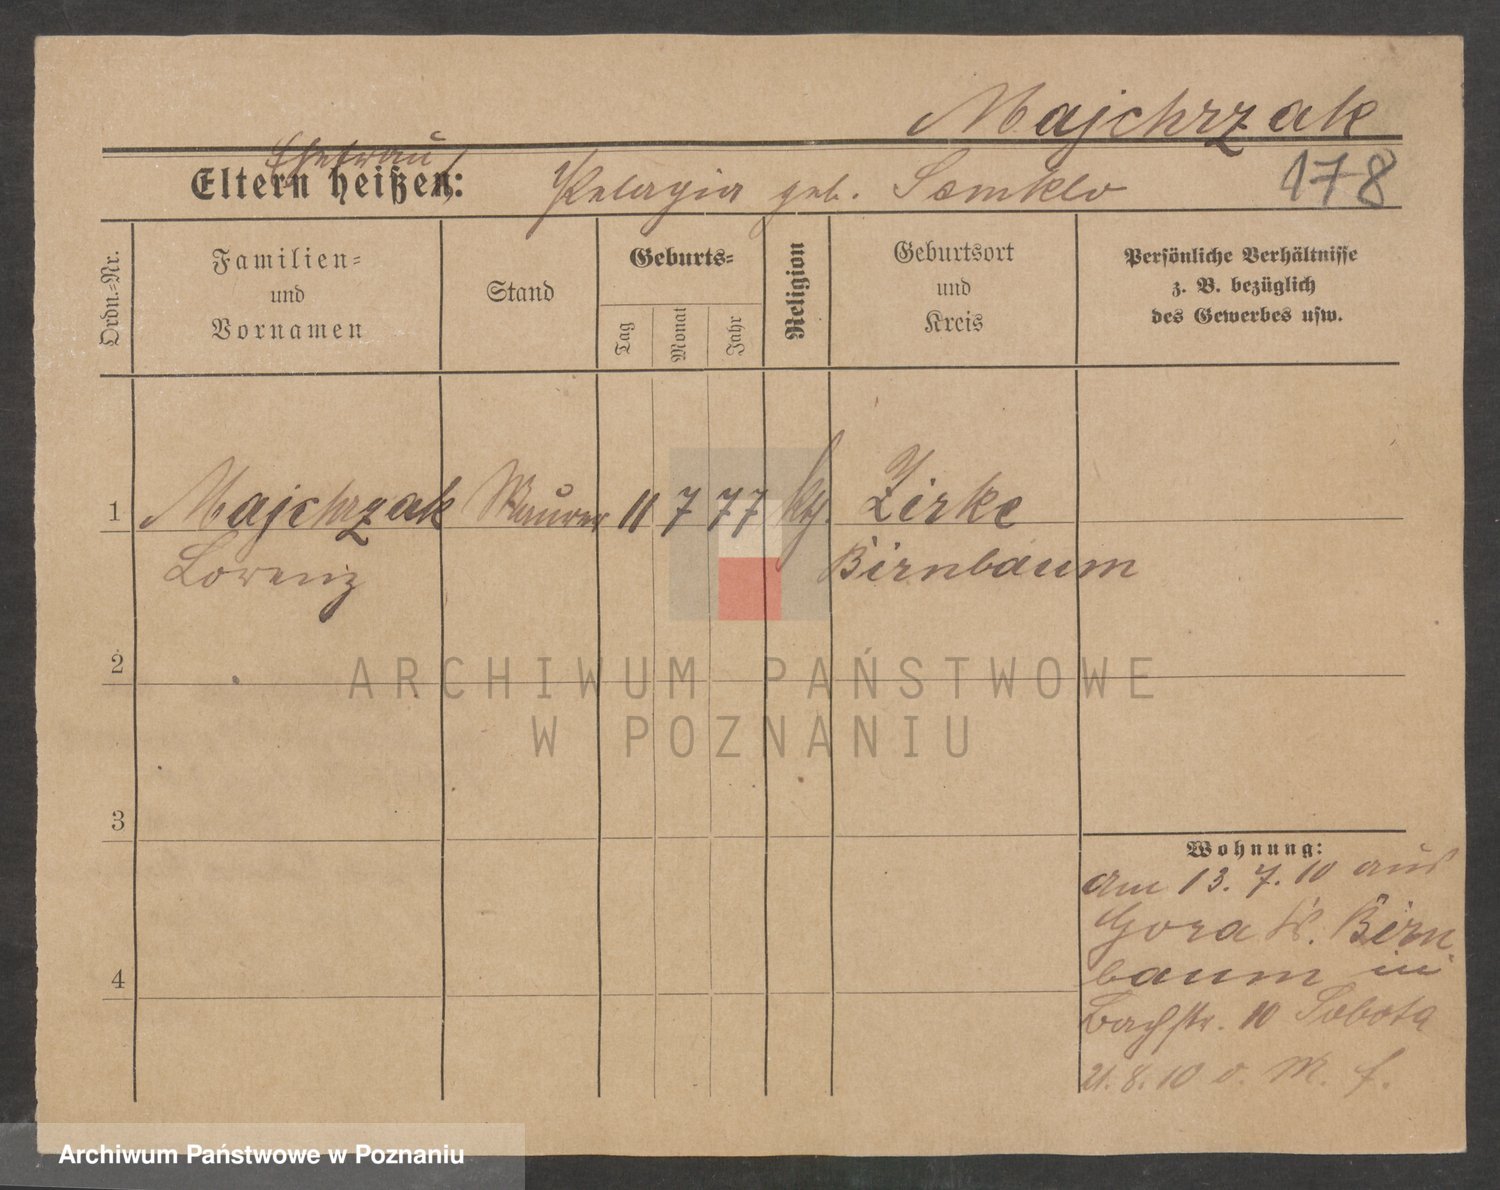 Majchrzak
Ehefrau
Eltern heißen: Pelagia geb. Semklo
178
Ordn.-Nr.
Familien-
und
Vornamen
Stand
Geburts-
Tag
Monat
Jahr
Religion
Geburtsort
und
Kreis
Persönliche Verhältnisse
z. B. bezüglich
des Gewerbes usw.
1 Majchrzak Maurer 11 7 77 kt. Zirke
Lorenz Birnbaum
2
3
4
Wohnung:
am 13. 7. 10 aus
Gora K. Birn-
baum in
Bachstr. 10 Sobota
21. 8. 10 v. M. f.
ARCHIWUM PAŃSTWOWE
W POZNANIU
Archiwum Państwowe w Poznaniu